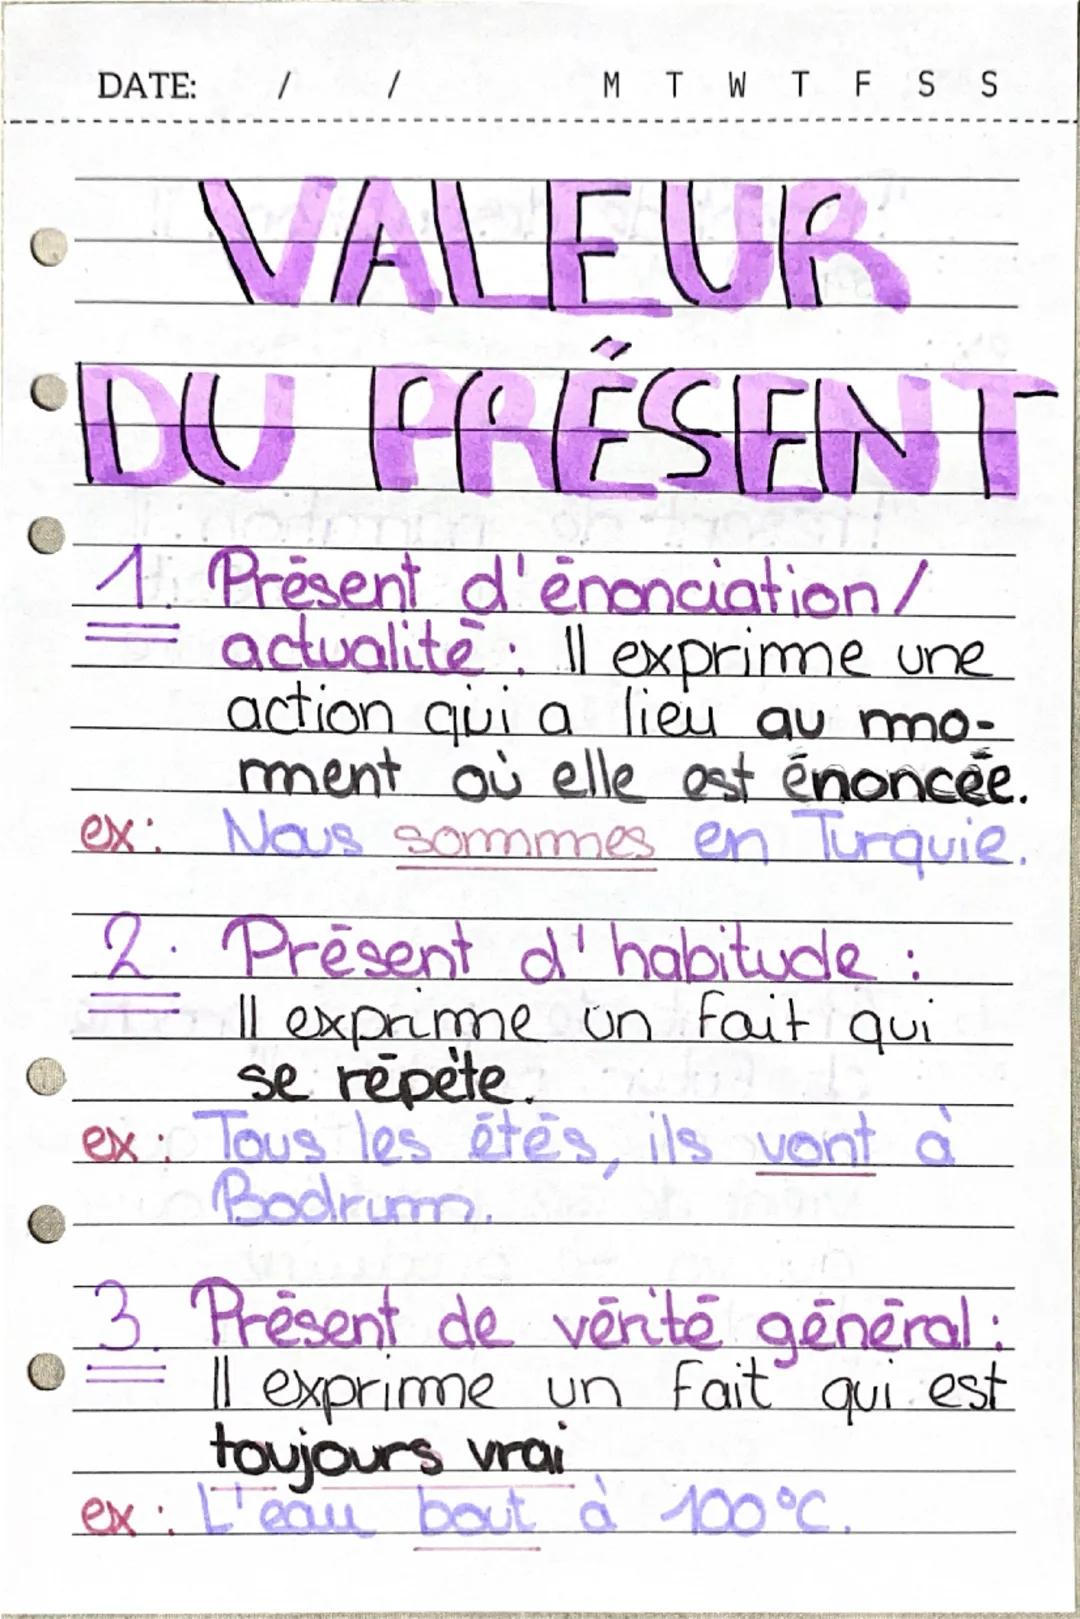 DATE: / / M T W T F S S
VALEUR
DU PRÉSENT
1. Présent d'énonciation/
actualité : Il exprime une
action qui a lieu au mo-
ment où elle est énoncée.
ex : Nous sommes en Turquie.
2. Présent d'habitude :
Il exprime un fait qui
se répète.
ex : Tous les étés, ils vont à
Bodrum.
3. Présent de vérité général :
Il exprime un fait qui est
toujours vrai
ex : L'eau bout à 100°C.